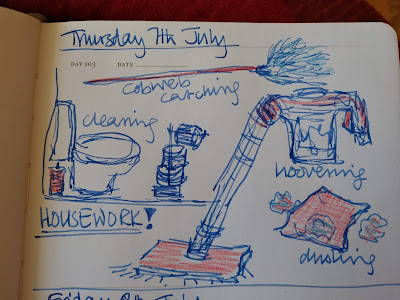 Thursday 7th July
DAY 103 DATE
cobweb
catching
cleaning
hoovering
HOUSEWORK!
dusting
Friday 8th July